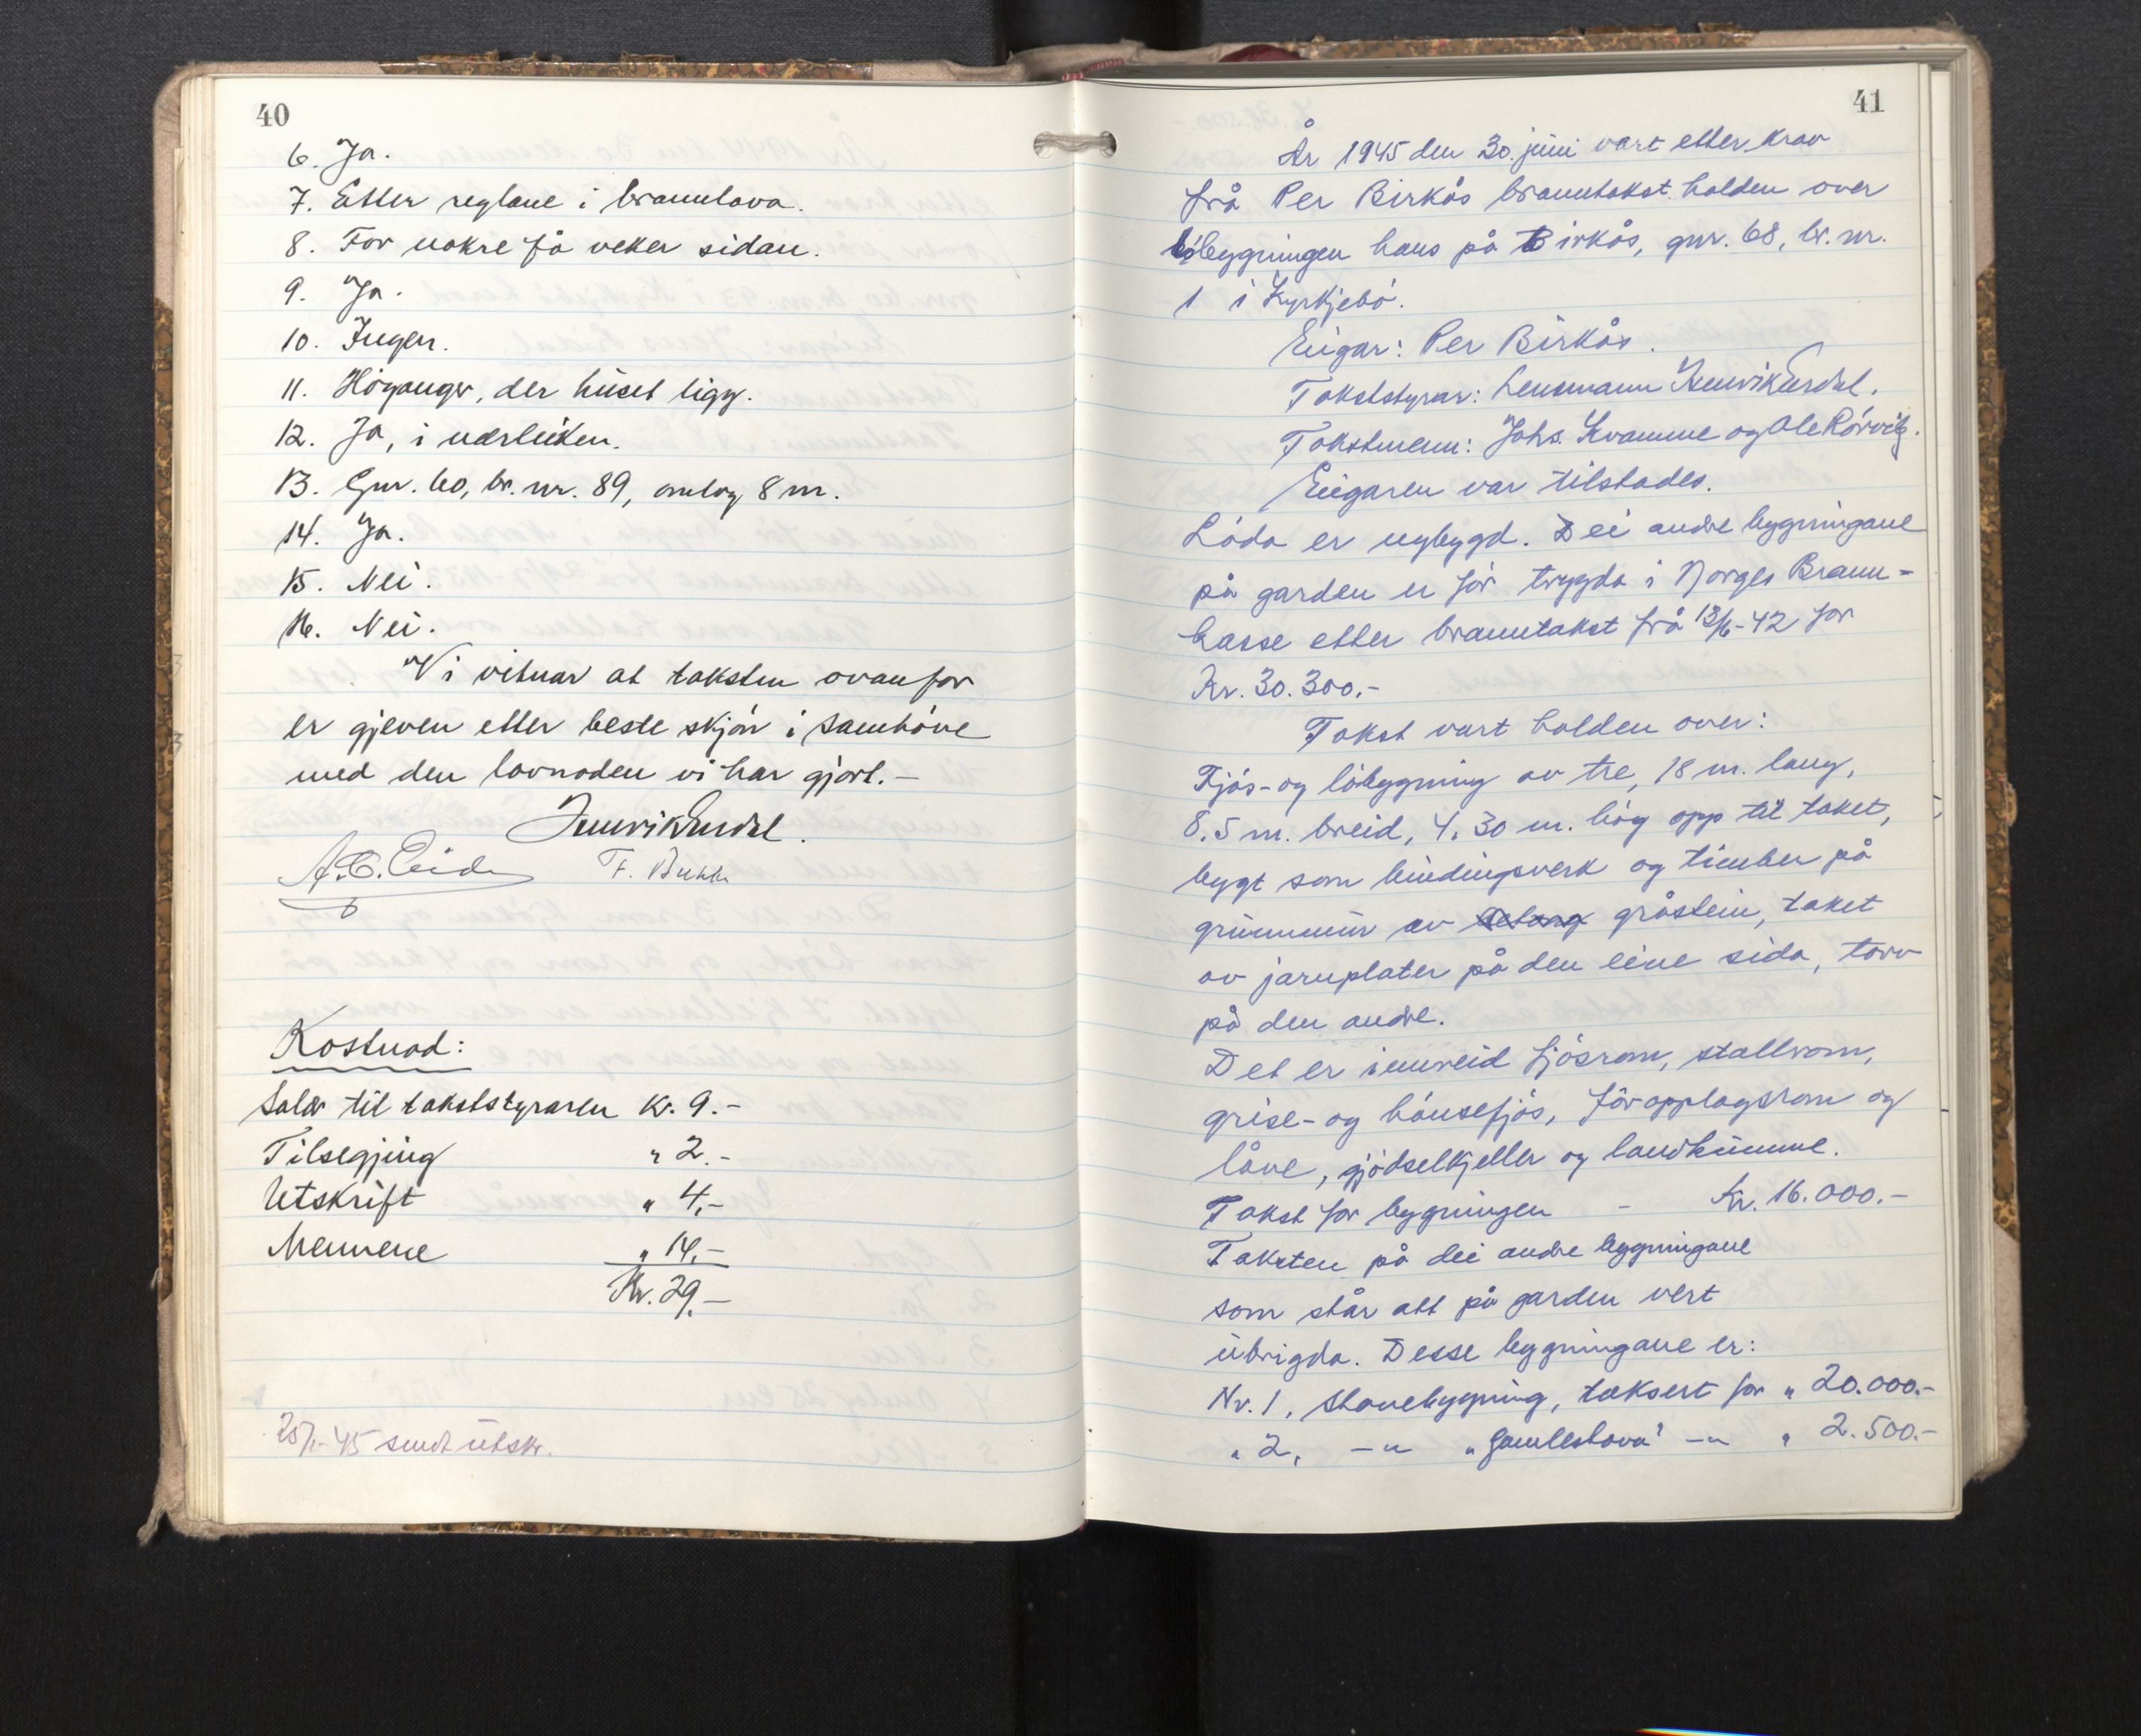 40
6. Ja.
7. Etter reglane i brannlova.
8. For nokre få veker sidan.
9. Ja.
10. Ingen.
11. Höyanger, der huset ligg.
12. Ja, i nærleiken.
13. Gnr. 60, br. nr. 89, omlag 8 m.
14. Ja.
15. Nei.
16. Nei.
Vi vitnar at taksten ovanfor
er gjeven etter beste skjön i samhöve
med den lovnaden vi har gjort.-
Henrik Erdal.
A. C. Eide F.
Kostnad:
Salær til takststyraren Kr. 9.-
Tilsegjing " 2.-
Utskrift " 4.-
Mennene " 14.-
Kr. 29.-
45 sendt utskr.
41
År 1945 den 30. juni vart etter krav
frå Per Birkås branntakst halden over
löbygningen hans på Birkås, gnr. 68, br. nr.
1 i Kyrkjebö.
Eigar: Per Birkås.
Takststyrar: Lensmann Henrik Erdal.
Takstmenn: Johs. Kvamme og Ole Rörvik.
Eigaren var tilstades.
Löda er nybygd. Dei andre bygningane
på garden er för trygda i Norges Brann-
kasse etter branntakst frå 12/6-42 for
Kr. 30.300.-
Takst vart halden over:
Fjös- og löbygning av tre, 18 m. lang,
8.5 m. breid, 4.30 m. hög opp til taket,
bygt som bindingsverk og timber på
grunnmur av gråstein, taket
av jarnplater på den eine sida, torv
på den andre.
Det er innreid fjösrom, stallrom,
grise- og hönsefjös, föropplagsrom og
låve, gjödselkjeller og landkumme.
Takst for bygningen - Kr. 16.000.-
Taksten på dei andre bygningane
som står att på garden vert
ubrigda. Desse bygningane er:
Nr. 1, stovebygning, taksert for " 20.000.-
" 2, -"- "Gamlestova" -"- " 2.500.-